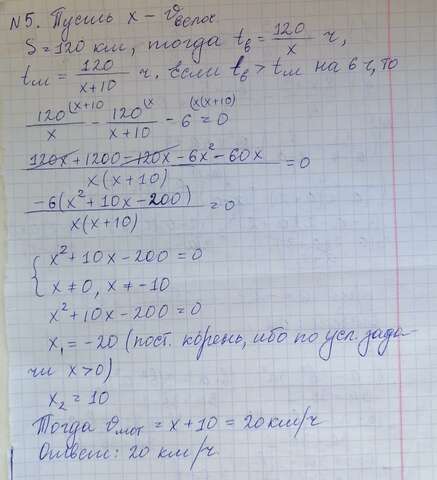 N5. Пусть x – vвелос.
S = 120 км, тогда tв = 120/x ч,
tм = 120/(x+10) ч. Если tв > tм на 6 ч, то
120/x (x+10 – 120/(x+10) (x – 6 (x(x+10) = 0
(120x + 1200 – 120x – 6x² – 60x)/(x(x+10)) = 0
–6(x² + 10x – 200)/(x(x+10)) = 0
{ x² + 10x – 200 = 0
x ≠ 0, x ≠ –10
x² + 10x – 200 = 0
x₁ = –20 (пост. корень, ибо по усл. зада-
чи x > 0)
x₂ = 10
Тогда vмот = x + 10 = 20 км/ч
Ответ: 20 км/ч.